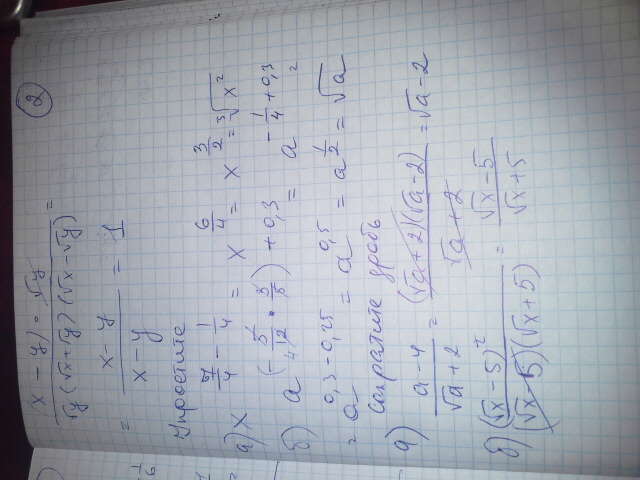 ②
(x - y) · √y / √y (√x + √y) (√x - √y) =
= x - y / x - y = 1
Упростите
а) x^(7/4 - 1/4) = x^(6/4) = x^(3/2) = ³√x²
б) a^(-5/12 · 3/5) + 0,3 = a^(-1/4 + 0,3) =
= a^(0,3 - 0,25) = a^(0,5) = a^(1/2) = √a
Сократите дробь
а) a - 4 / √a + 2 = (√a + 2)(√a - 2) / √a + 2 = √a - 2
б) (√x - 5)² / (√x - 5)(√x + 5) = √x - 5 / √x + 5